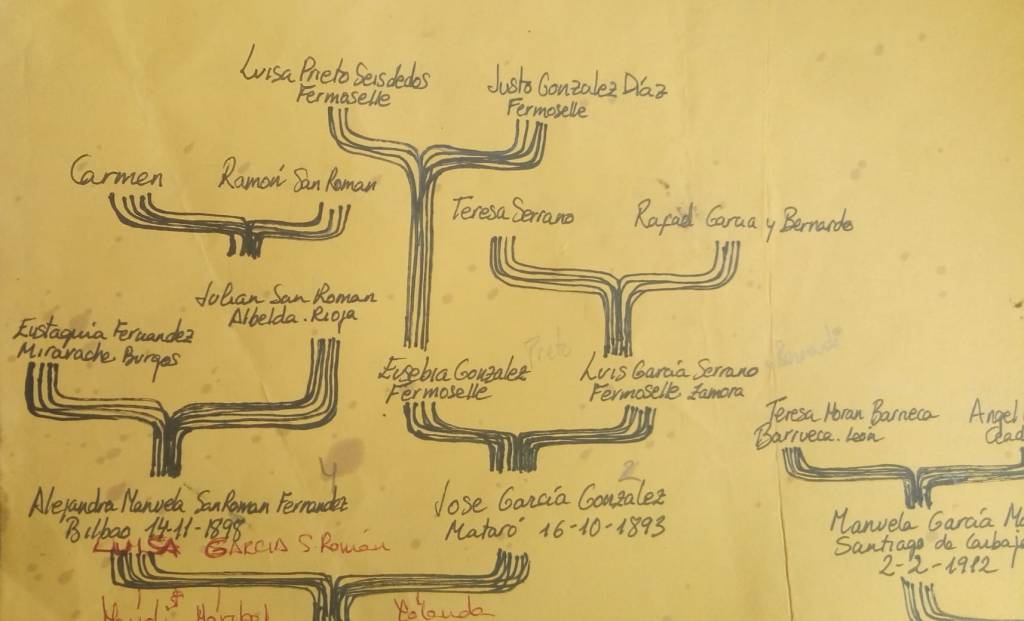 Luisa Prieto Seisdedos
Fermoselle
Justo Gonzalez Díaz
Fermoselle
Carmen
Ramón San Roman
Teresa Serrano
Rafael Garcia y Bernardo
Julian San Roman
Albelda. Rioja
Eustaquia Fernandez
Miravache. Burgos
Prieto
Eusebia Gonzalez
Fermoselle
Luis García Serrano
Fermoselle Zamora
Teresa Moran Barrueca
Barrueca. León
Angel
4
2
Alejandra Manuela San Roman Fernandez
Bilbao 14-11-1898
Jose García González
Mataró 16-10-1893
LUISA GARCIA S. Román
Manuela García
Santiago de
2-2-1912
Maribel
Yolanda